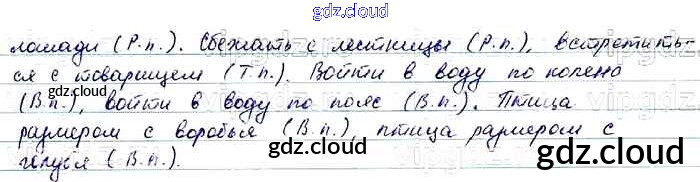 gdz.cloud
лошади (Р.п.). Сбежать с лестницы (Р.п.), встретить-
ся с товарищем (Т.п.). Войти в воду по колено
(В.п.), войти в воду по пояс (В.п.). Птица
размером с воробья (В.п.), птица размером с
голубя (В.п.).
gdz.cloud
gdz.cloud